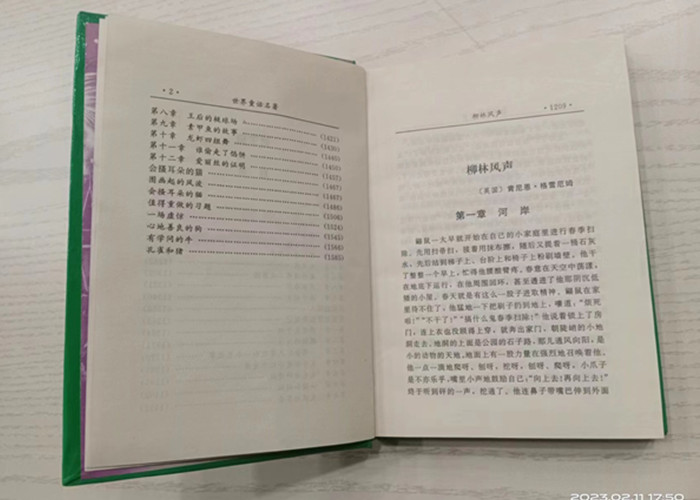 ·2·
世界童话名著
第八章 王后的槌球场 (1421)
第九章 素甲鱼的故事 (1430)
第十章 龙虾四组舞 (1440)
第十一章 谁偷走了馅饼 (1450)
第十二章 爱丽丝的证明
会搔耳朵的猫 (1467)
图画起的风波 (1487)
会搔耳朵的猫
值得重做的习题 (1506)
一场虚惊 (1524)
心地善良的狗 (1545)
有学问的牛
孔雀和猪 (1585)
柳林风声 ·1209·
柳林风声
〔英国〕肯尼思·格雷厄姆
第一章 河岸
鼹鼠一大早就开始在自己的小家庭里进行春季扫
除。先用扫帚扫,接着用抹布擦,随后又提着一桶石灰
水,先后站到梯子上、台阶上和椅子上粉刷墙壁。他干
了整整一个早上,忙得他腰酸臂疼。春意在天空中荡漾,
在地底下运行,在他周围回环,甚至透进了他那阴沉低
矮的小屋。春天就是有这么一股子进取精神。鼹鼠在家
里待不住了,他猛地一下把刷子扔到地上,嚷道:“烦死
啦!”“不干了!”“搞什么鬼春季扫除!”他说着锁上了房
门,连上衣也没顾得上穿,就奔出家门,朝陡峭的小地
洞走去。地洞的上面是公园的石子路,那儿通风向阳,是
小的动物的天地。地面上有一股力量在强烈地召唤着他,
他一点一跳地爬呀,刨呀,挖呀,刨呀,爬呀,小爪子
是不亦乐乎,嘴里小声地鼓励自己:“向上去!再向上去!”
终于听到砰的一声,挖通了。他连鼻子带嘴巴伸到外面
2023.02.11 17:50